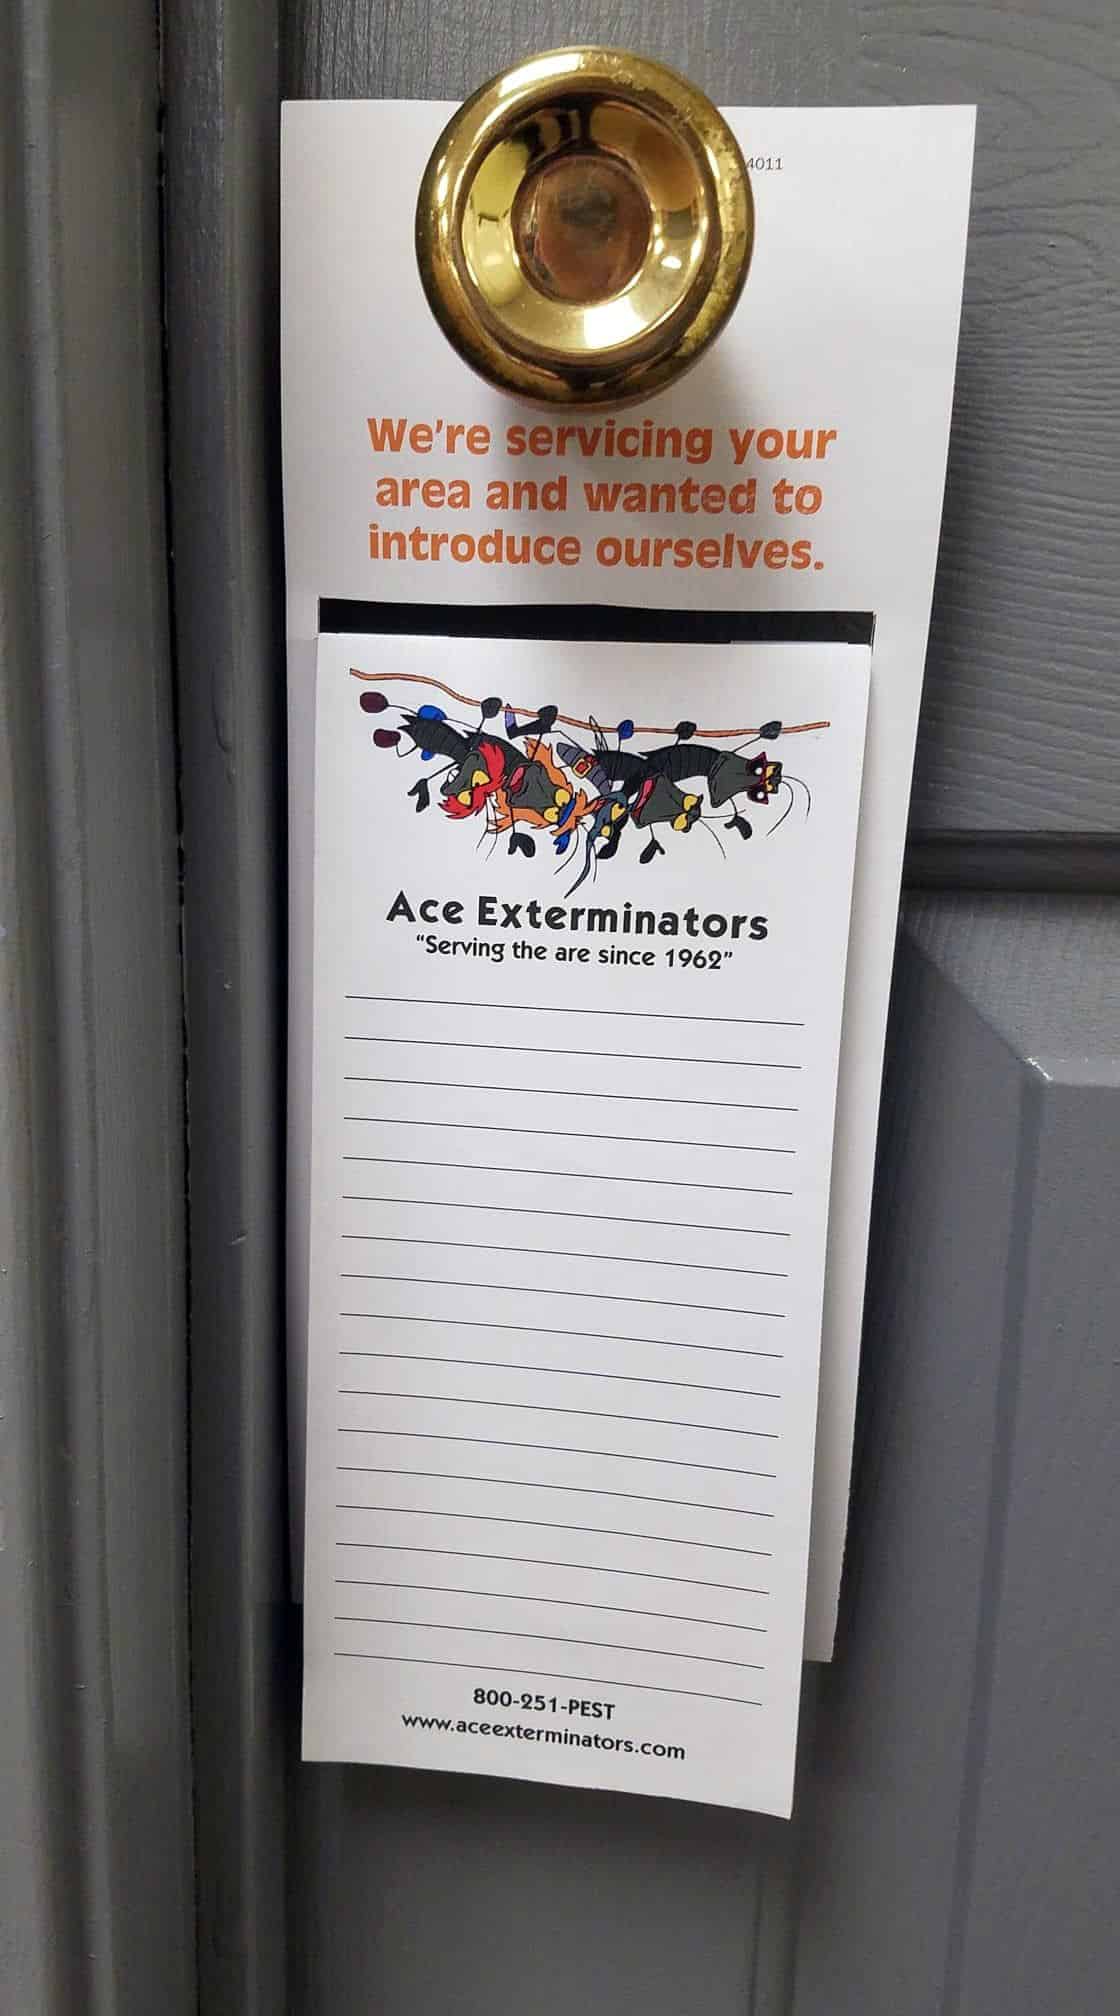 4011
We're servicing your
area and wanted to
introduce ourselves.
Ace Exterminators
"Serving the are since 1962"
800-251-PEST
www.aceexterminators.com